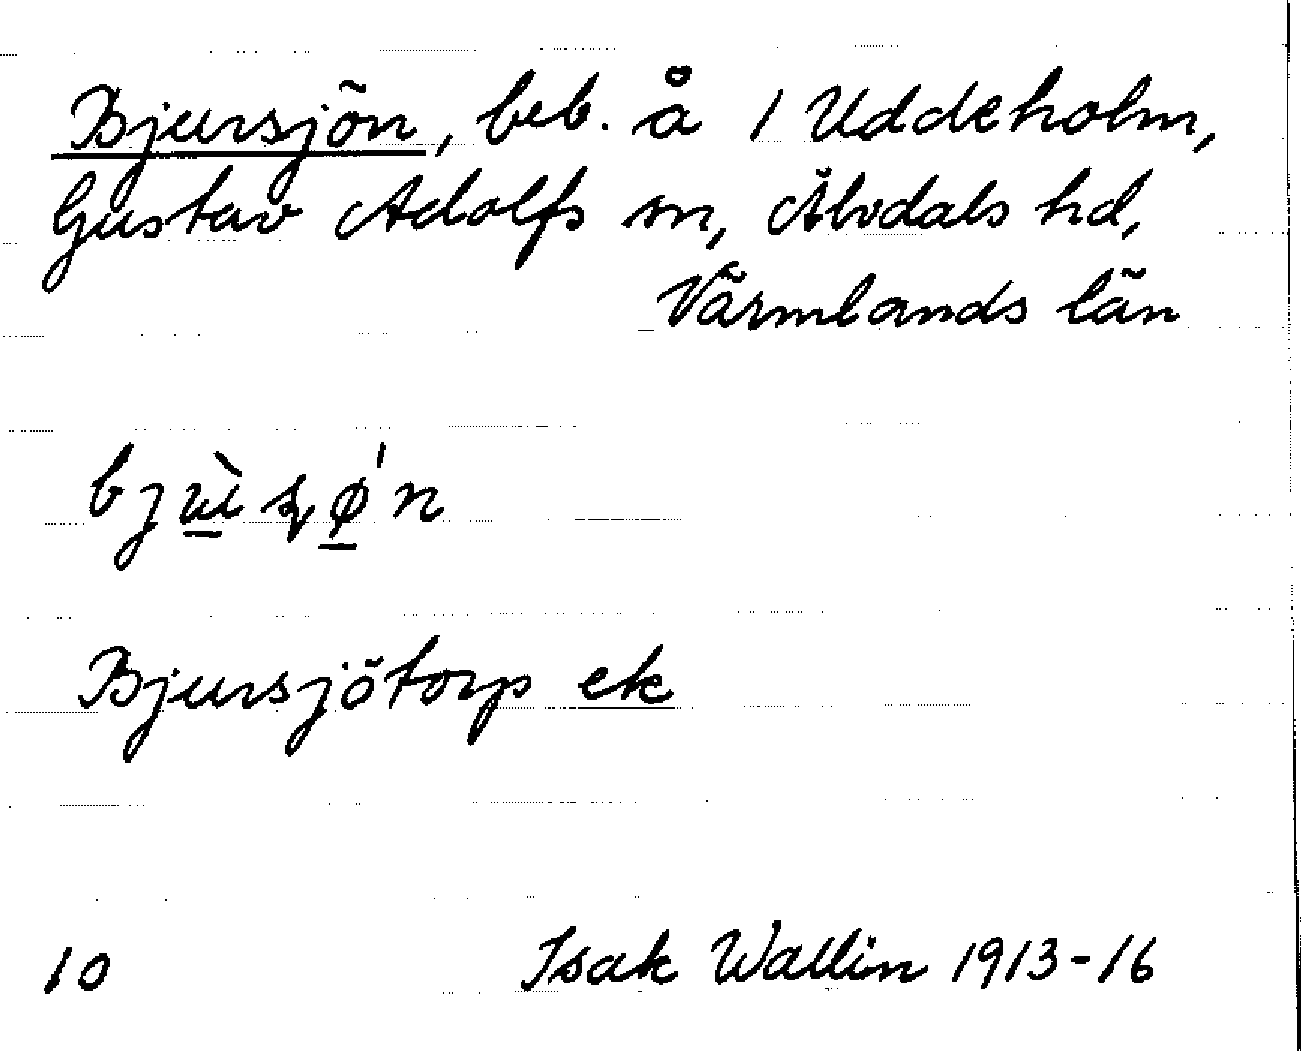 Bjursjön, beb. å 1 Uddeholm,
Gustav Adolfs sn, Älvdals hd,
Värmlands län
Bjursjötorp ek
10 Isak Wallin 1913-16